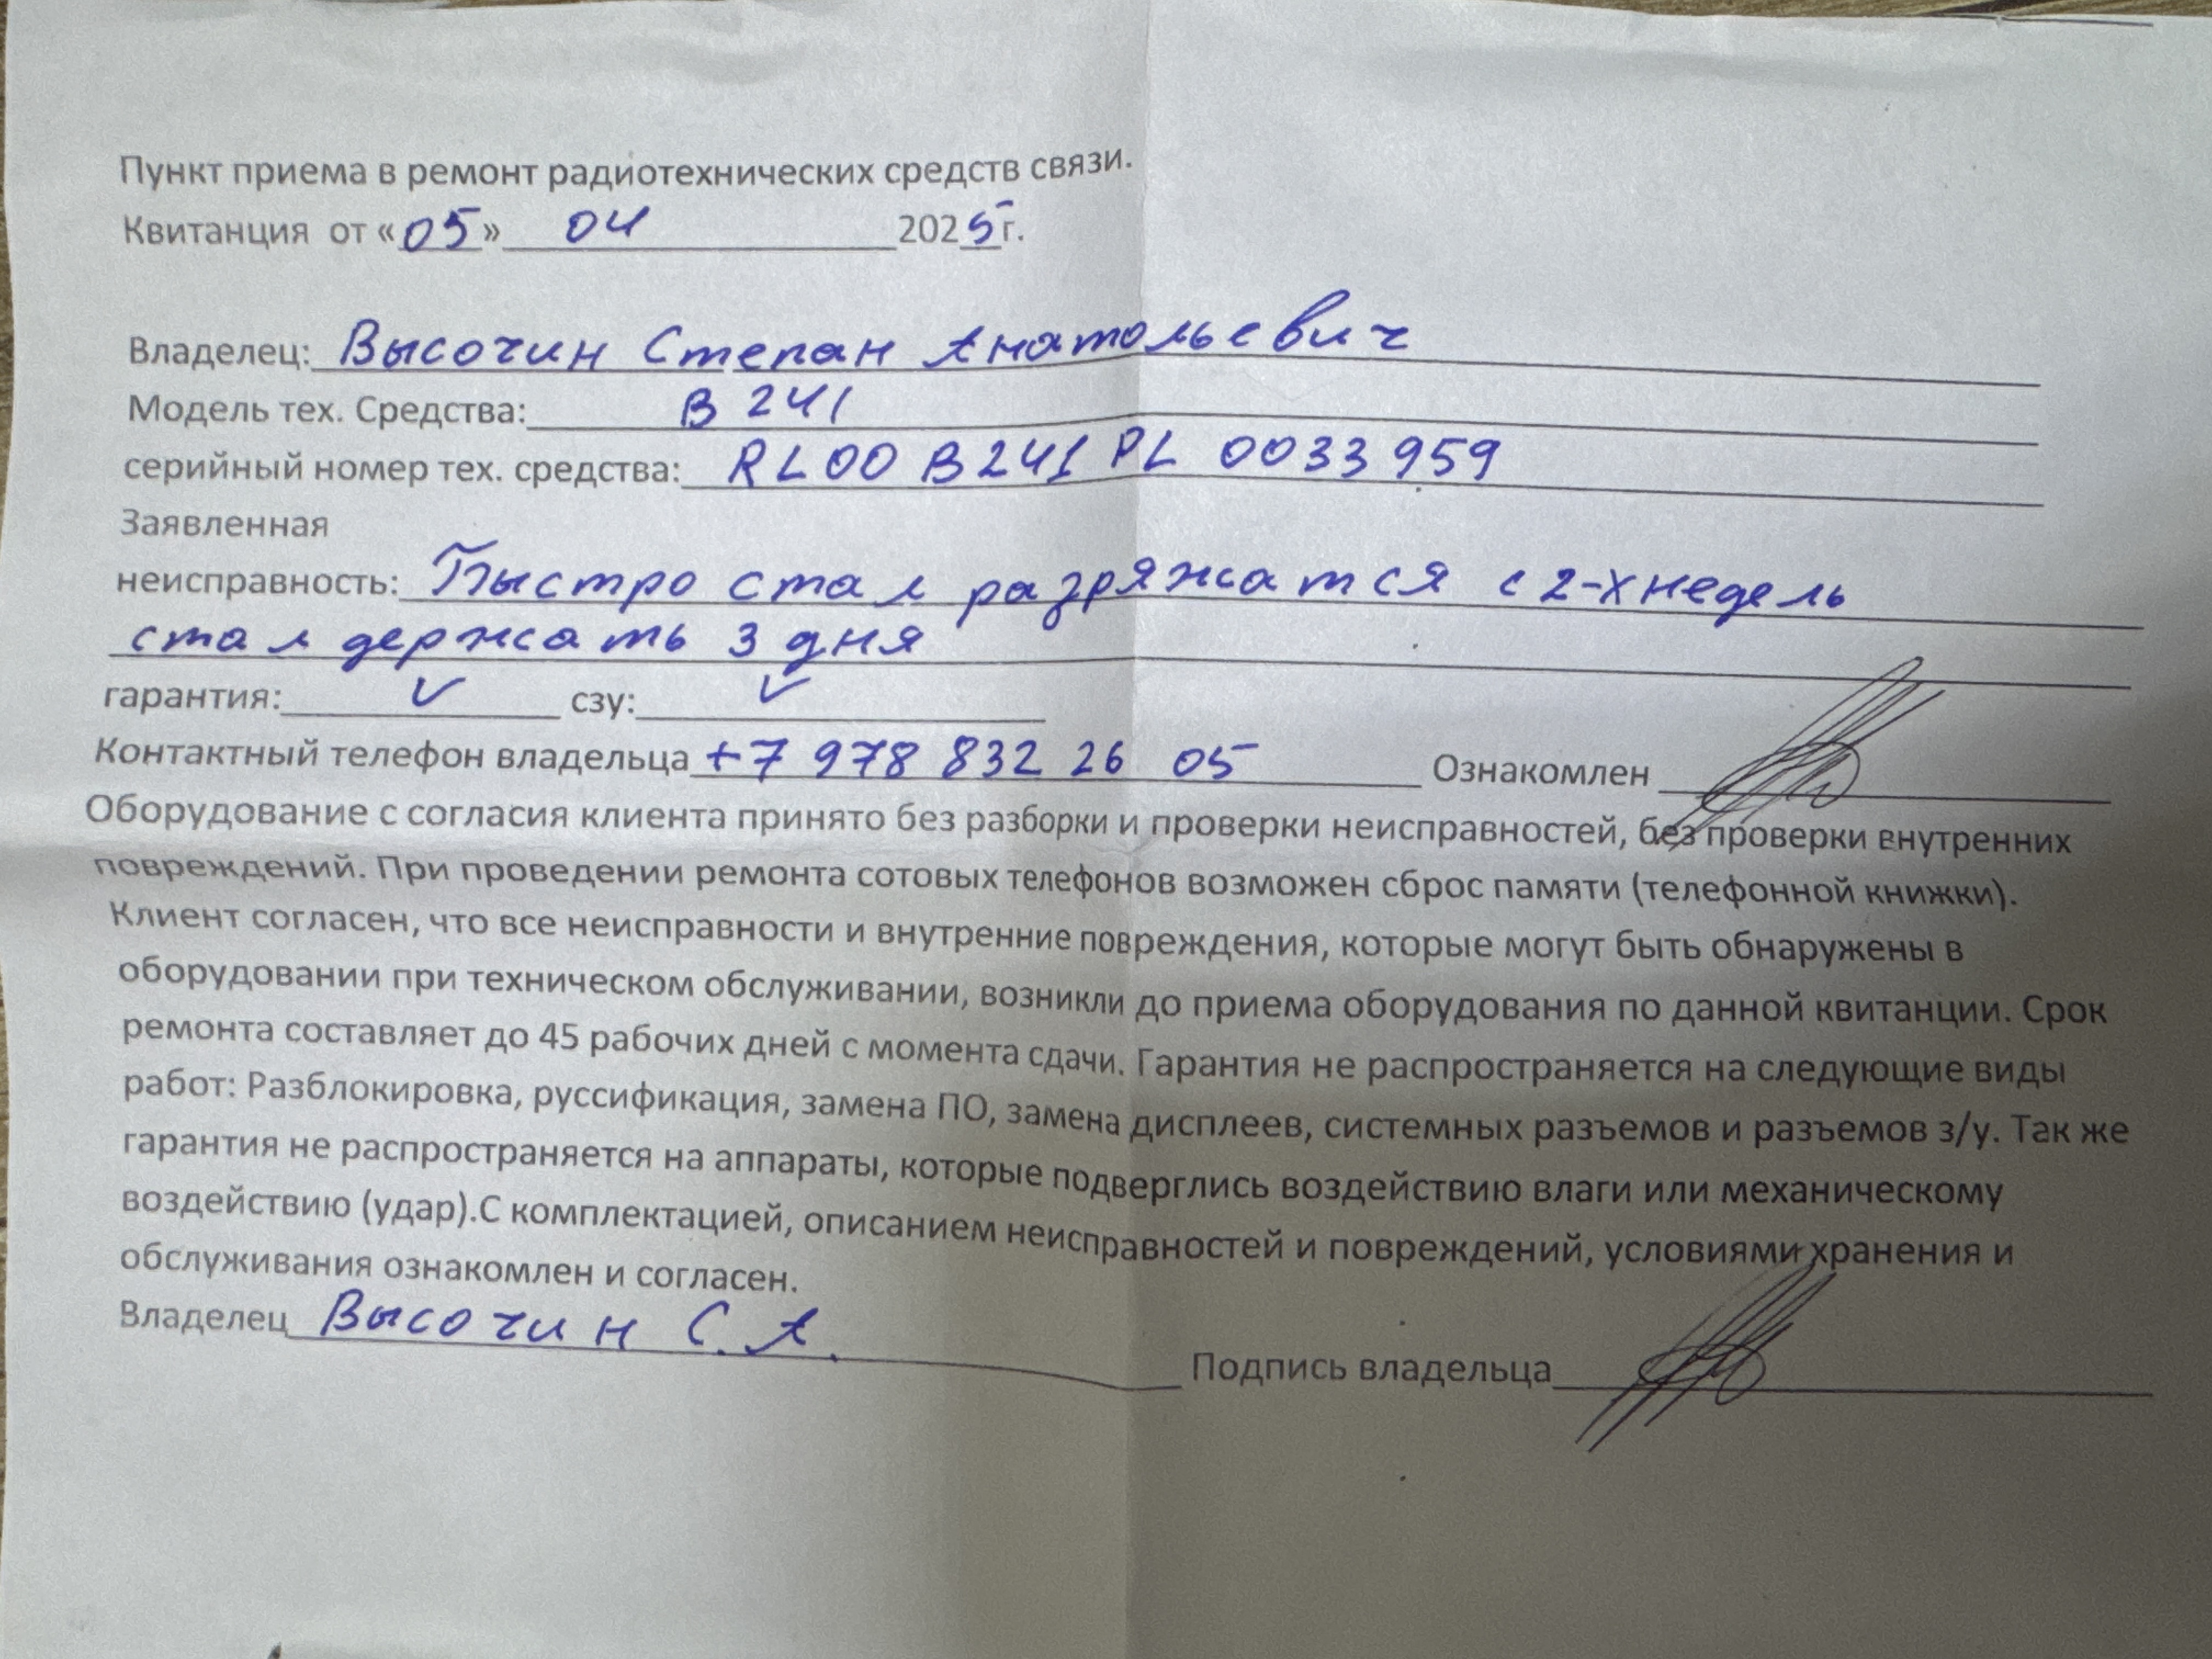 Пункт приема в ремонт радиотехнических средств связи.
Квитанция от «05» 04 2025г.
Владелец: Высочин Степан Анатольевич
Модель тех. Средства: B 241
серийный номер тех. средства: RL00 B241 PL 0033959
Заявленная
неисправность: Быстро стал разряжатся с 2-х недель
стал держать 3 дня
гарантия: ✓ сзу: ✓
Контактный телефон владельца +7 978 832 26 05 Ознакомлен
Оборудование с согласия клиента принято без разборки и проверки неисправностей, без проверки внутренних
повреждений. При проведении ремонта сотовых телефонов возможен сброс памяти (телефонной книжки).
Клиент согласен, что все неисправности и внутренние повреждения, которые могут быть обнаружены в
оборудовании при техническом обслуживании, возникли до приема оборудования по данной квитанции. Срок
ремонта составляет до 45 рабочих дней с момента сдачи. Гарантия не распространяется на следующие виды
работ: Разблокировка, руссификация, замена ПО, замена дисплеев, системных разъемов и разъемов з/у. Так же
гарантия не распространяется на аппараты, которые подверглись воздействию влаги или механическому
воздействию (удар).С комплектацией, описанием неисправностей и повреждений, условиями хранения и
обслуживания ознакомлен и согласен.
Владелец Высочин С. А. Подпись владельца